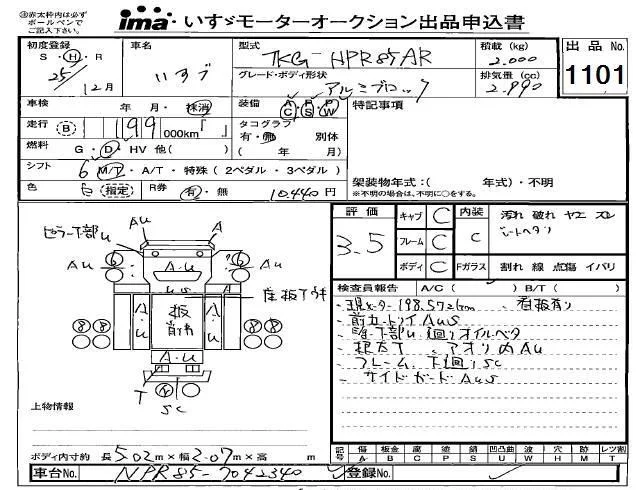 ㊟赤太枠内は必ず
ボールペンで
ご記入下さい。
ima・いすゞモーターオークション出品申込書
初度登録
S・H・R
25/
12月
車名
いすゞ
型式
TKG-HPR85AR
積載(kg)
2.000
出品No.
1101
グレード・ボディ形状
アルミブロック
排気量(cc)
2.990
車検
年 月・抹消
装備
A C P S P W
特記事項
走行(B)
199
000km『 』
タコグラフ
有・無 別体
( 年 月)
燃料
G・D・HV 他( )
シフト
6 M/T・A/T・特殊(2ペダル・3ペダル)
架装物年式:( 年式)・不明
※不明の場合は、不明に○をする。
色
白(指定)
R券
有・無
10.440円
ピラー下部u
Au
A
Au
6
6
Au
A・u
us
座板下サキ
A・u
板
A・u
8 8
8 8
A・u
T
SC
評価
3.5
キャブ C
フレーム C
ボディ C
内装
C
Fガラス
汚れ 破れ ヤニ スレ
シートヘタリ
割れ 線 点傷 イバリ
検査員報告
A/C( )
B/T( )
・現メーター198.572km 、看板有り
・前カドトリイAUS
・ 下部u、廻りオイルベタ
・根太T 、アオリ内Au
・フレーム、下廻りSC
・サイドガードAUS
上物情報
ボディ内寸約 長5.02m×幅2.07m×高 m
記号
傷 A
板金 B
腐 C
塗 P
錆 S
凹凸曲 U
波 W
穴 H
跡 M
レツ割 T
車台No.
NPR85-7042340
登録No.